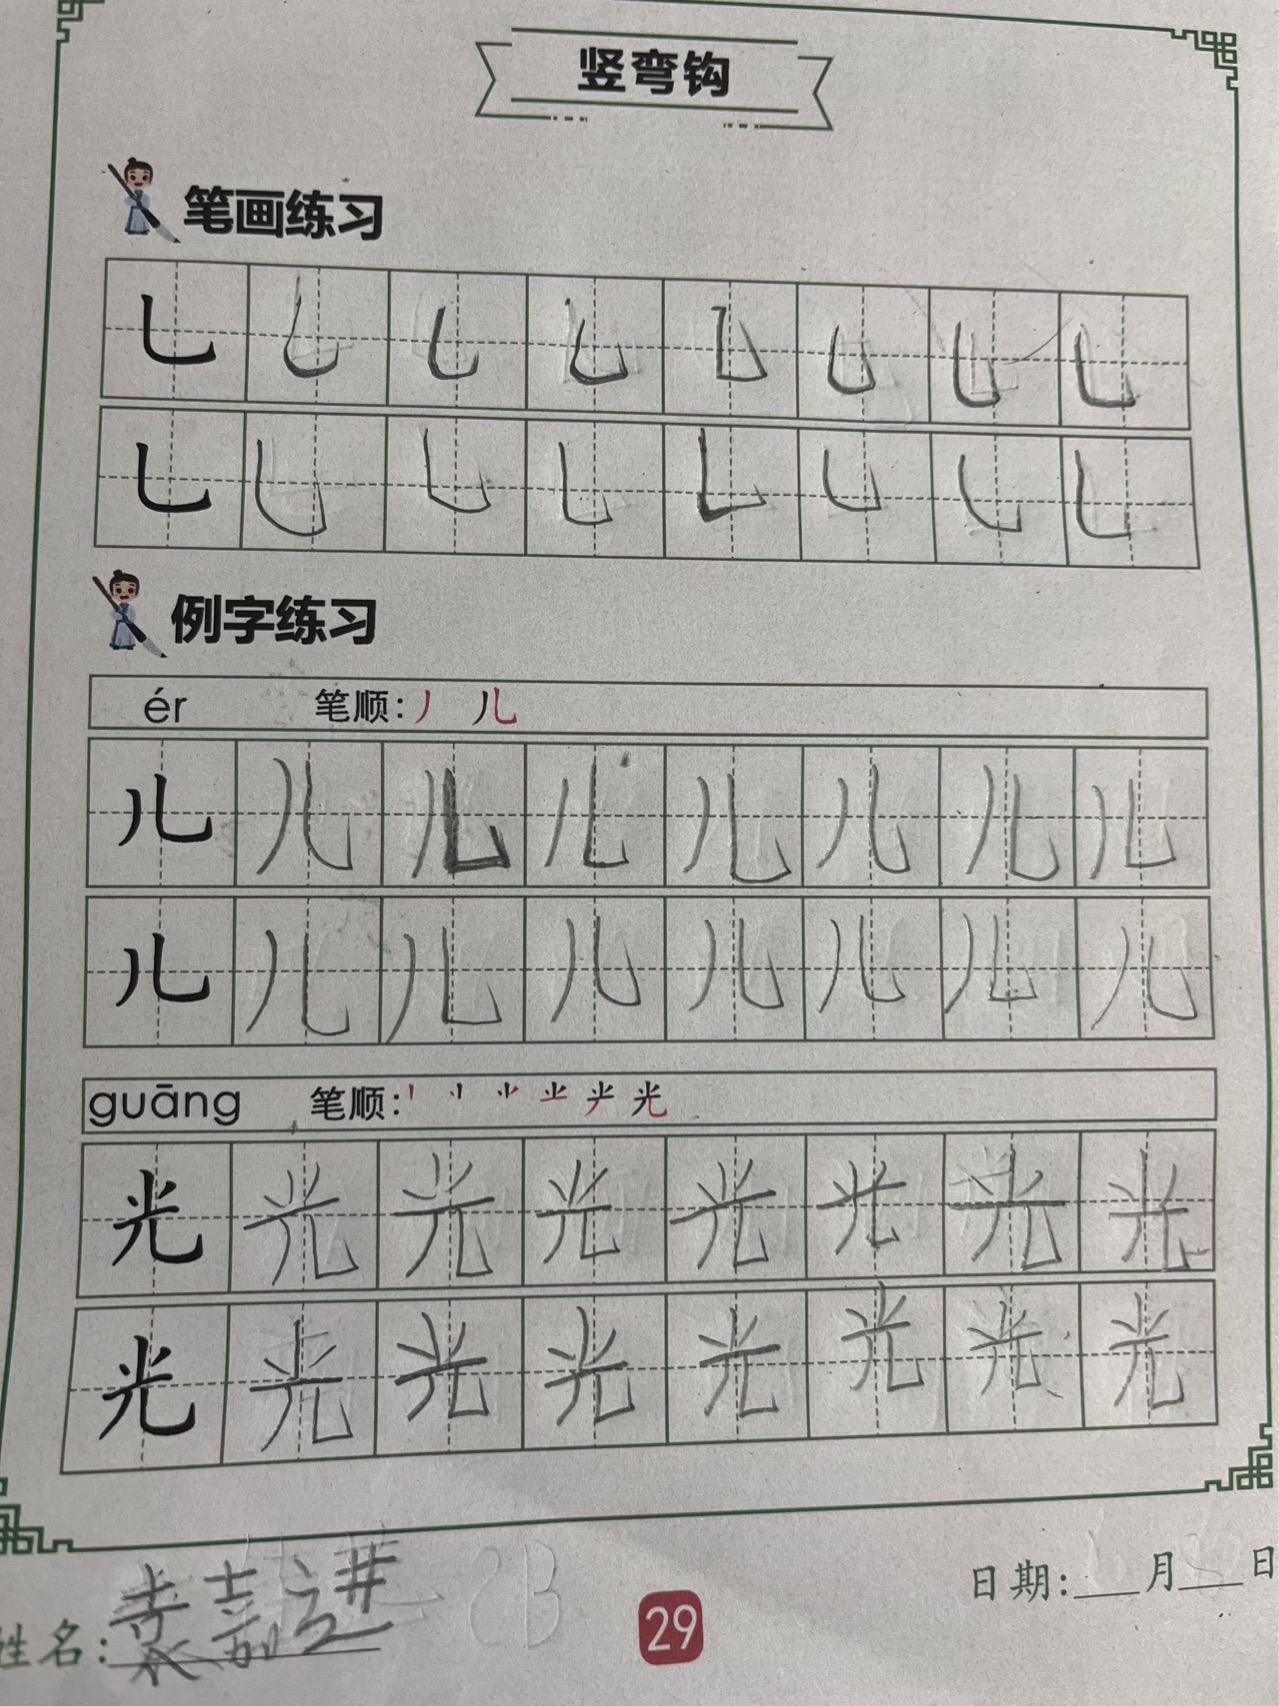 竖弯钩
笔画练习
乚 乚 乚 乚 乚 乚 乚 乚
乚 乚 乚 乚 乚 乚 乚 乚
例字练习
ér 笔顺: 丿 儿
儿 儿 儿 儿 儿 儿 儿 儿
儿 儿 儿 儿 儿 儿 儿 儿
guāng 笔顺: 光
光 光 光 光 光 光 光 光
光 光 光 光 光 光 光 光
日期:___月___日
姓名: 袁嘉进
29